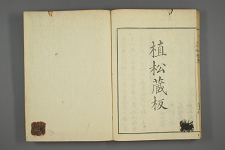 植松蔵板